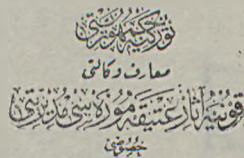 توركیه جمهوریتی
معارف وكالتی
قونیه آثار عتیقه موزه سی مدیریتی
خصوصی